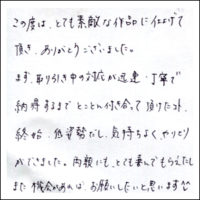 この度は、とても素敵な作品に仕上げて
頂き、ありがとうございました。
まず、取り引き中の対応が迅速・丁寧で
納得するまでとことん付き合って頂けたコト、
終始、低姿勢だし、気持ちよく、やりとり
ができました。両親にも、とても喜んでもらえたし
また機会があれば、お願いしたいと思います